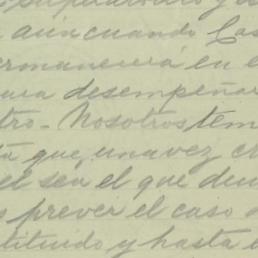 aún cuando Cas
ermanecerá en e
ara desempeñar
tro - Nosotros tem
que, una vez c
el sea el que de
s prever el caso
tituido y hasta